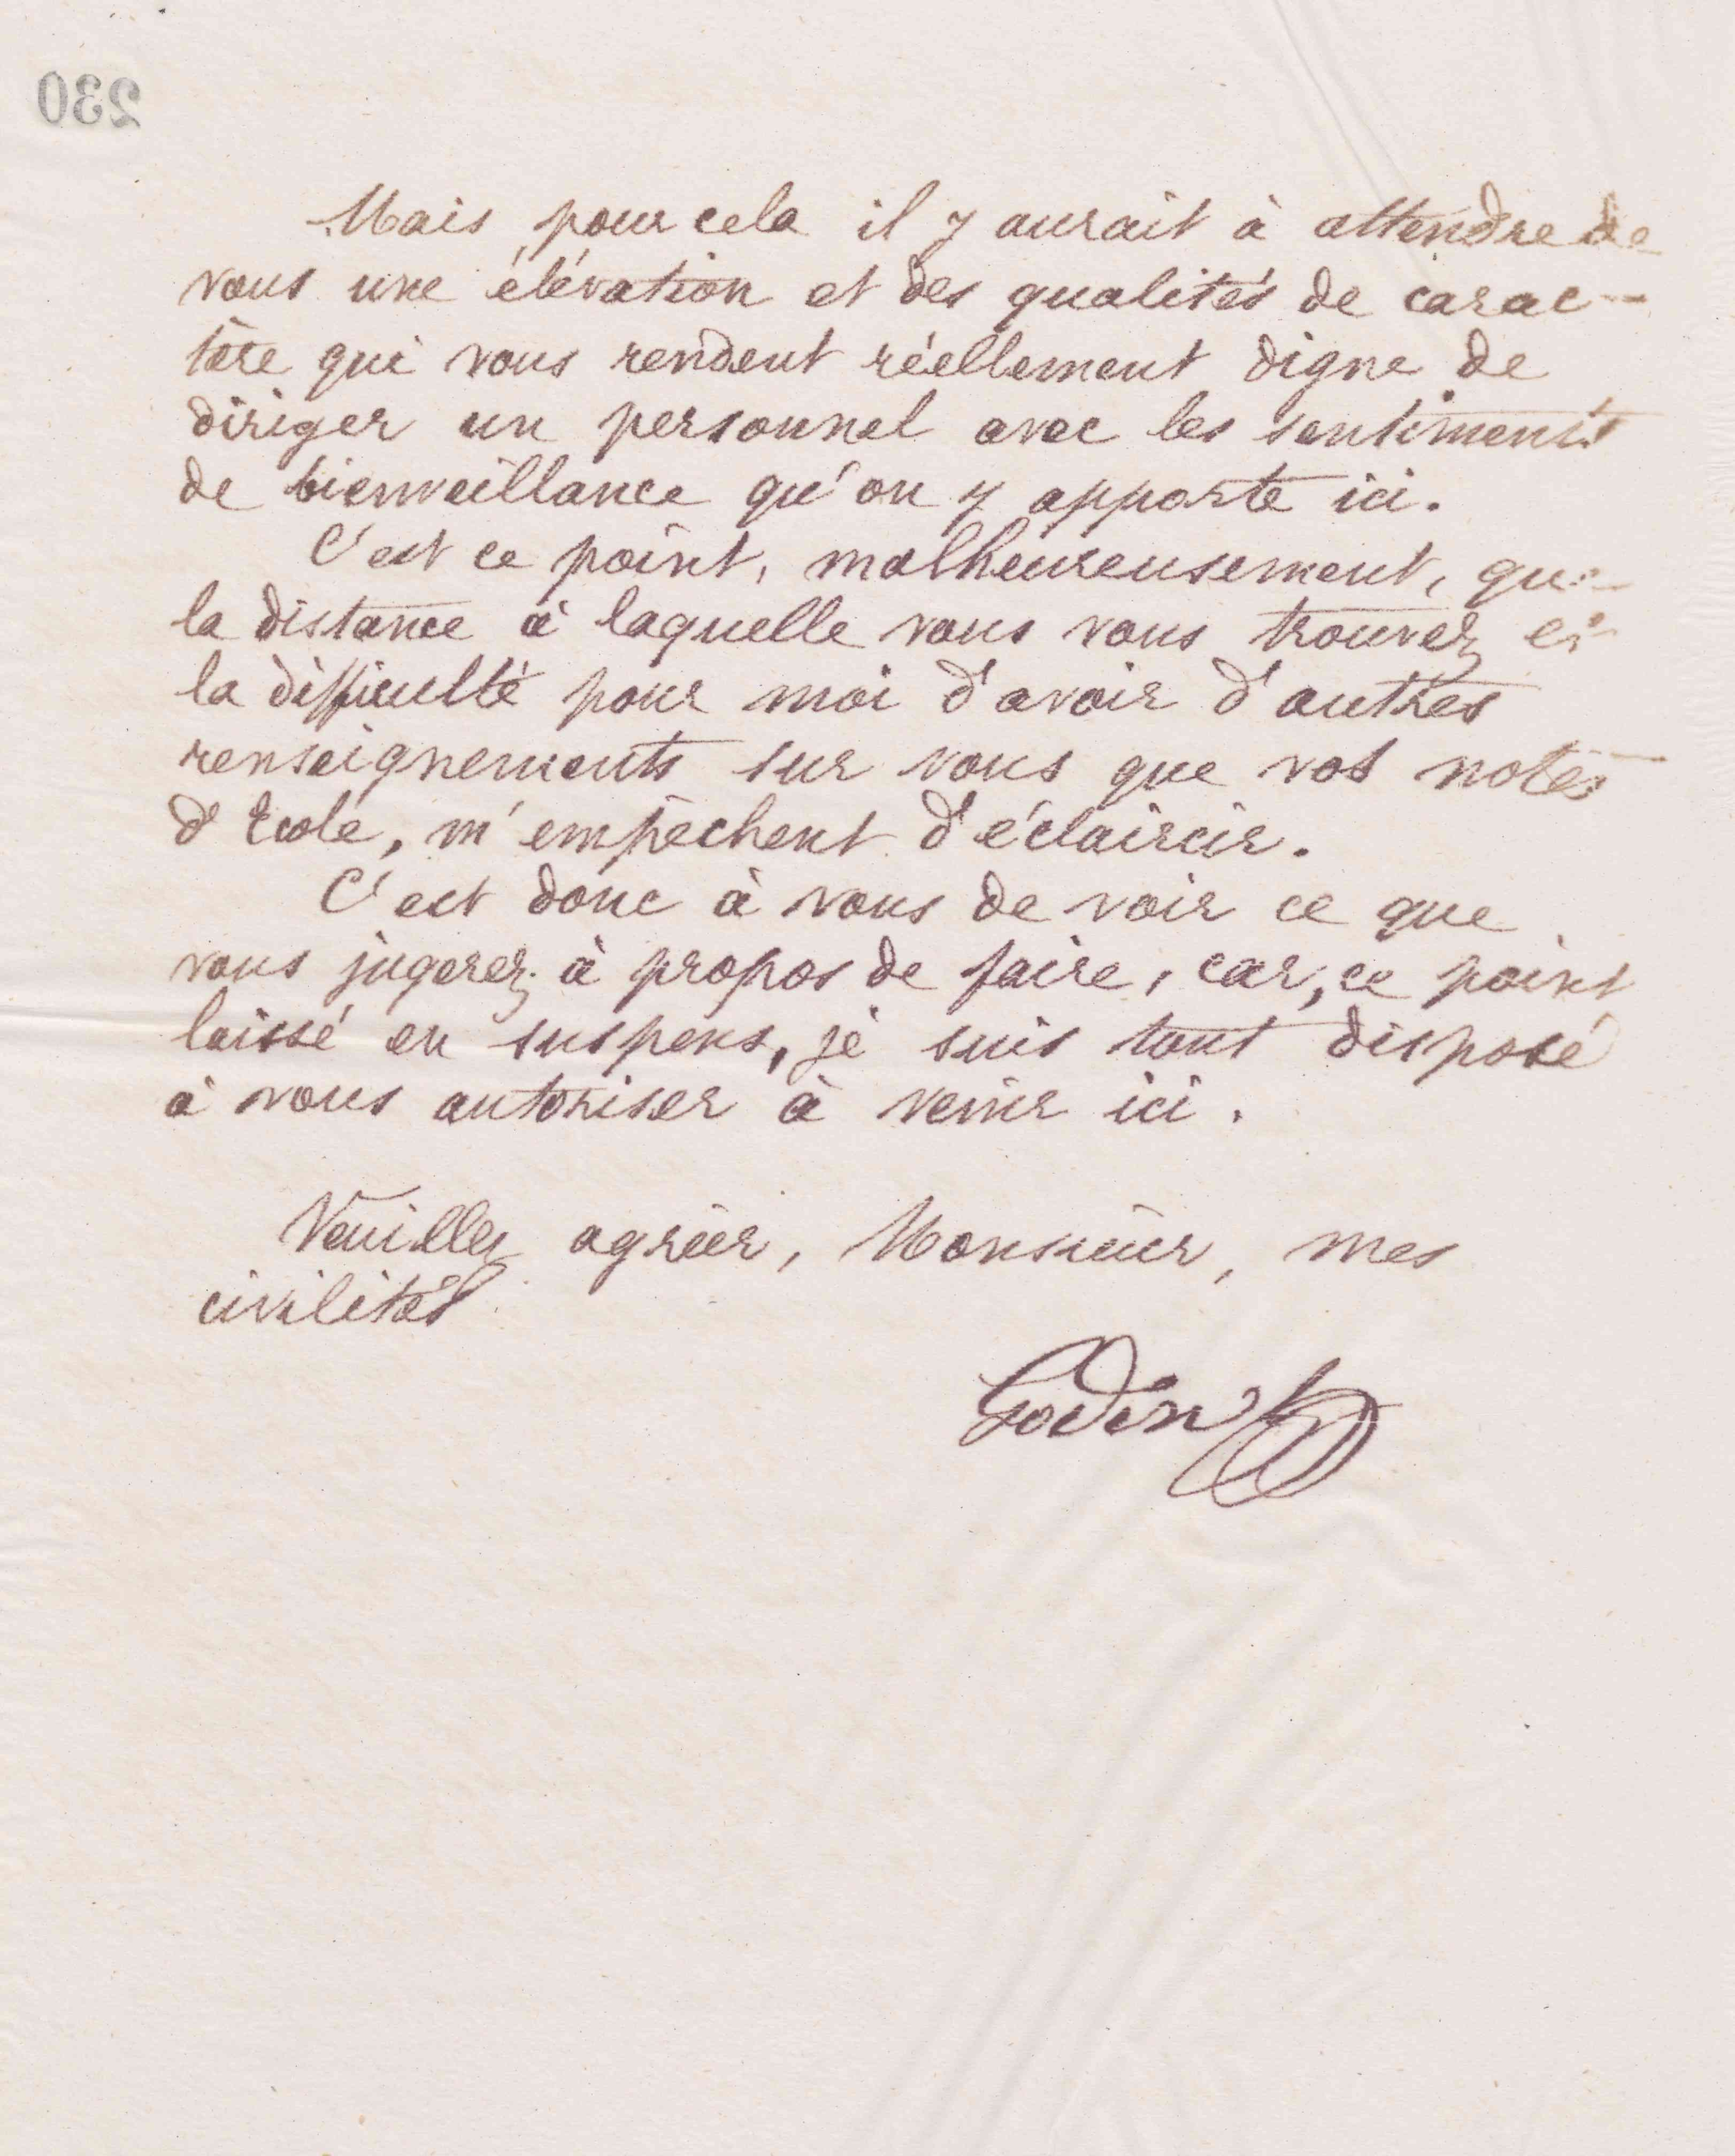 230
Mais pour cela il y aurait à attendre de
vous une élévation et des qualités de carac-
tère qui vous rendent réellement digne de
diriger un personnel avec les sentiments
de bienveillance qu'on y apporte ici.
C'est ce point, malheureusement, que
la distance à laquelle vous vous trouvez et
la difficulté pour moi d'avoir d'autres
renseignements sur vous que vos notes
d'Ecole, m'empêchent d'éclaircir.
C'est donc à vous de voir ce que
vous jugerez à propos de faire, car, ce point
laissé en suspens, je suis tout disposé
à vous autoriser à venir ici.
Veuillez agréer, Monsieur, mes
civilités
Godin